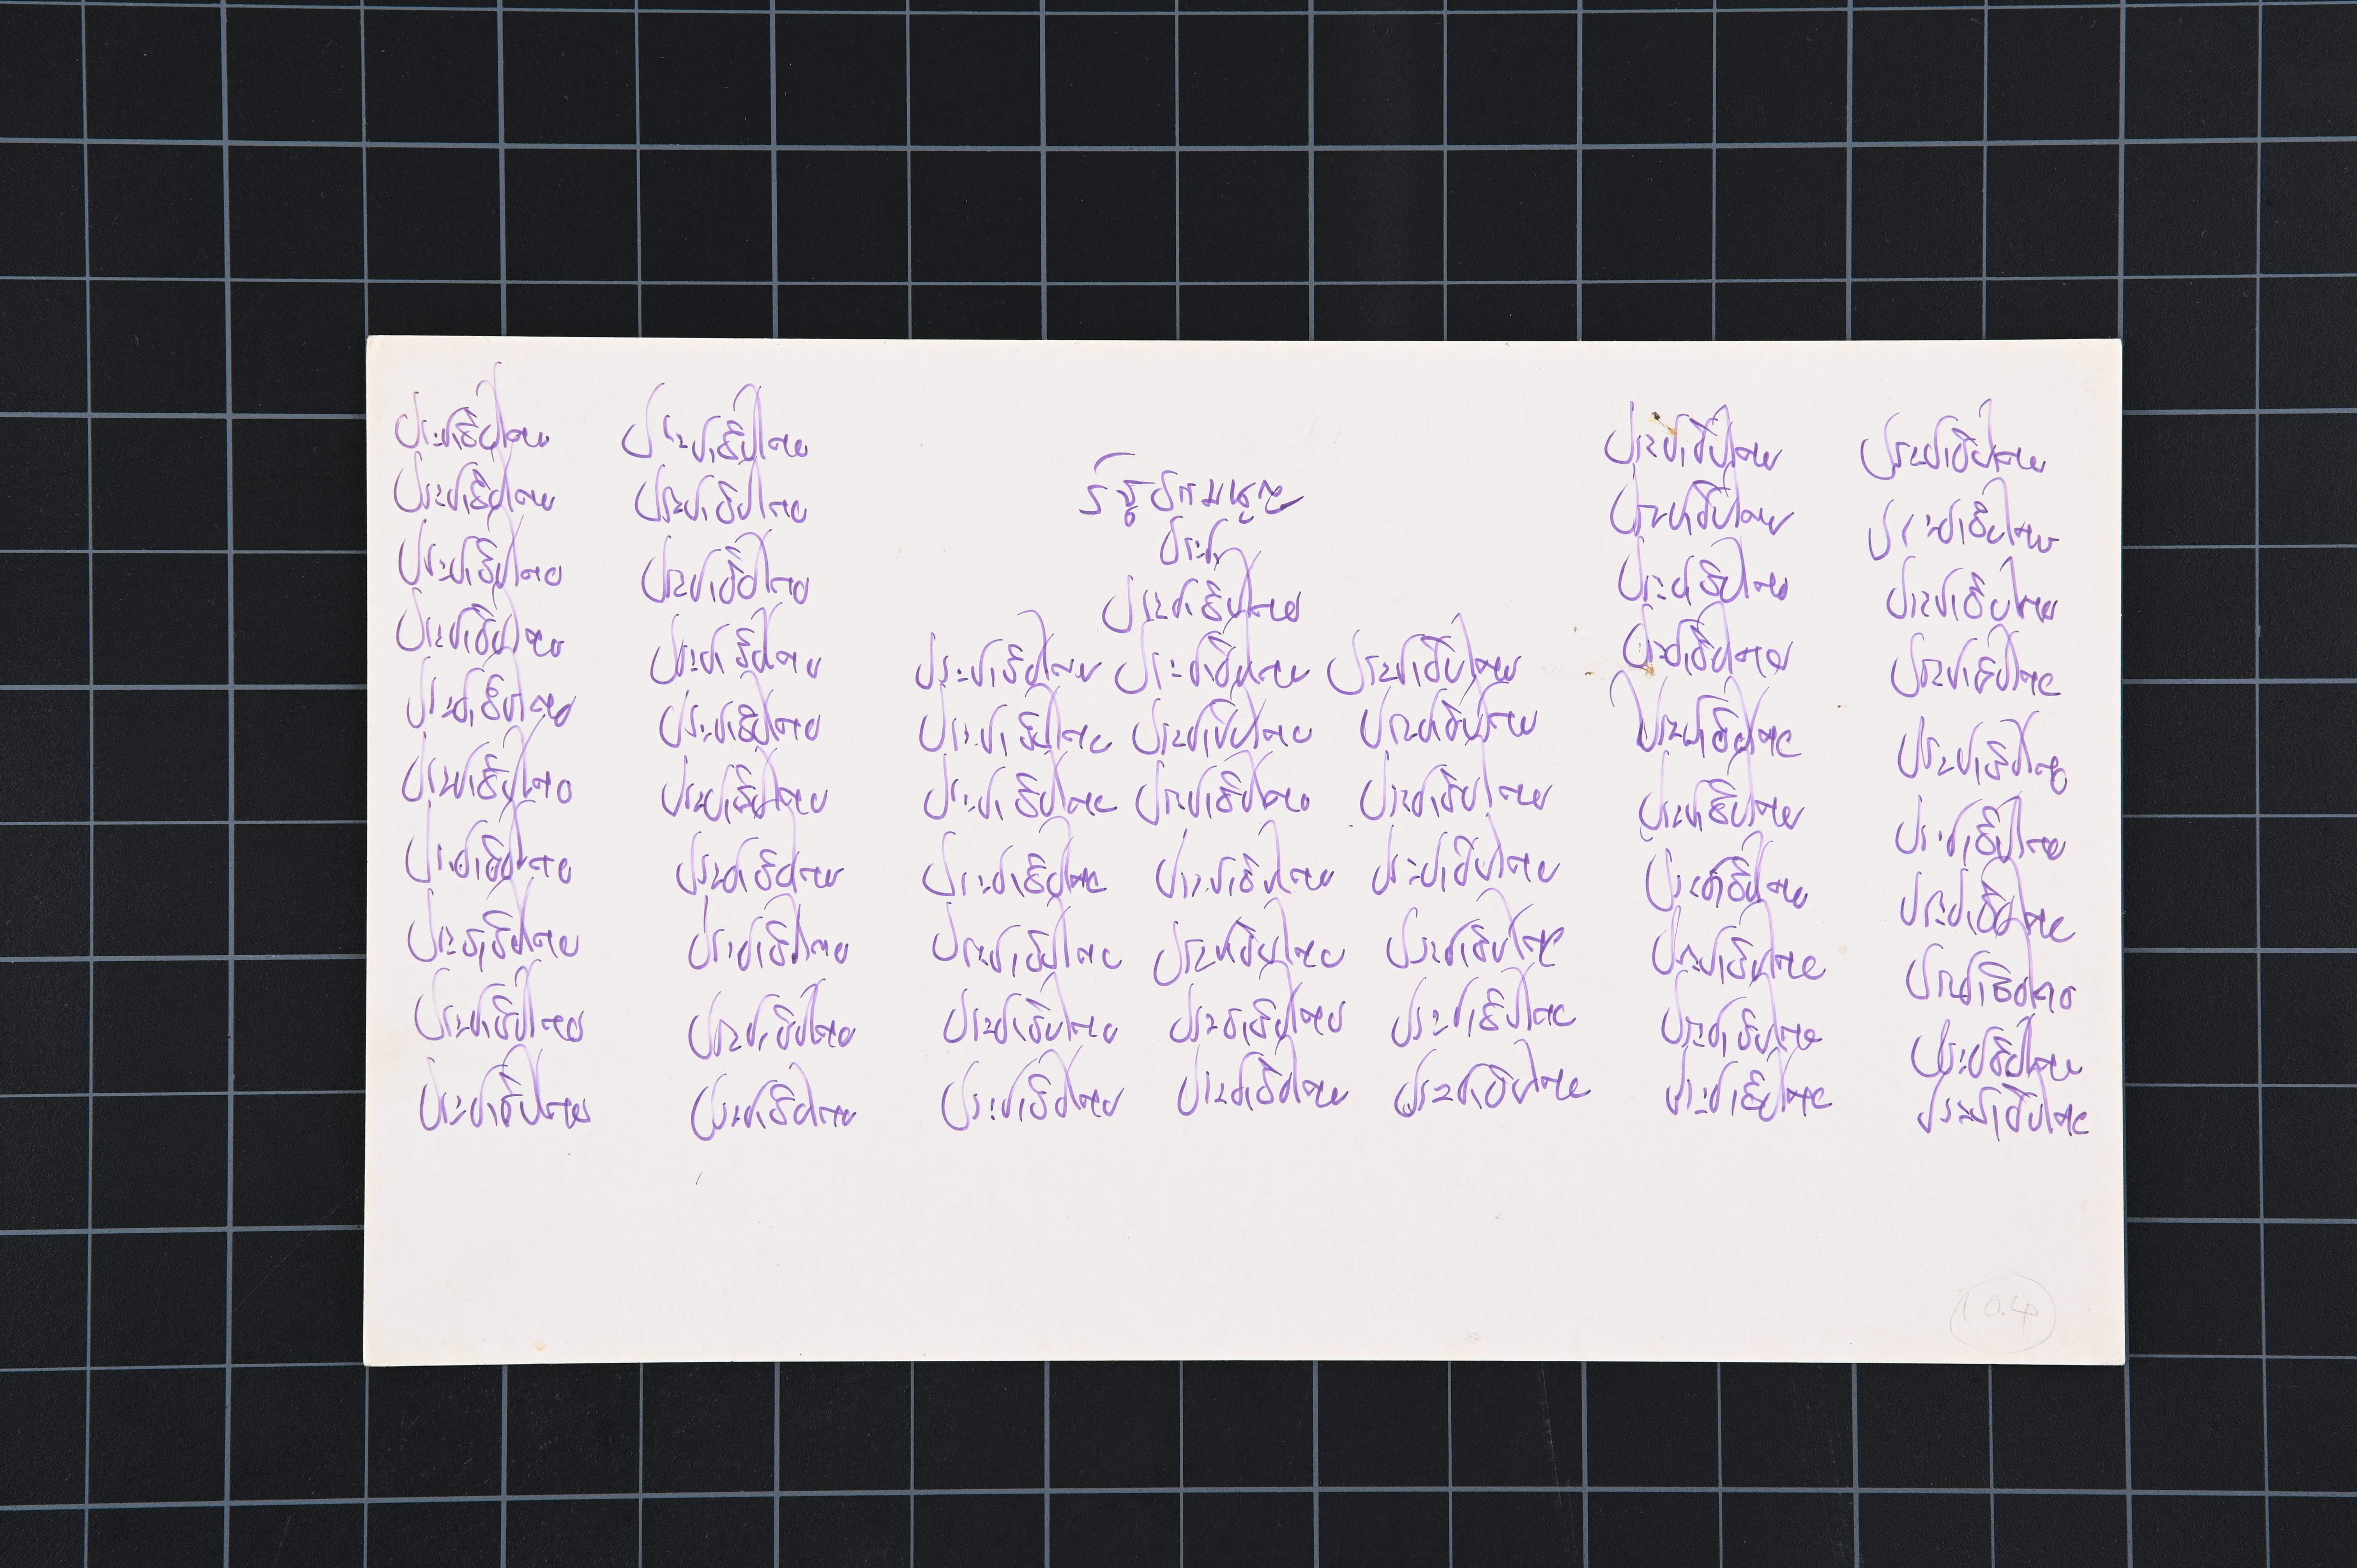 ประชาธิปไตย ประชาธิปไตย ประชาธิปไตย ประชาธิปไตย
ประชาธิปไตย ประชาธิปไตย รัฐธรรมนูญ ประชาธิปไตย ประชาธิปไตย
ประชาธิปไตย ประชาธิปไตย ประชาธิปไตย ประชาธิปไตย ประชาธิปไตย
ประชาธิปไตย ประชาธิปไตย ประชาธิปไตย ประชาธิปไตย ประชาธิปไตย ประชาธิปไตย ประชาธิปไตย
ประชาธิปไตย ประชาธิปไตย ประชาธิปไตย ประชาธิปไตย ประชาธิปไตย ประชาธิปไตย ประชาธิปไตย
ประชาธิปไตย ประชาธิปไตย ประชาธิปไตย ประชาธิปไตย ประชาธิปไตย ประชาธิปไตย ประชาธิปไตย
ประชาธิปไตย ประชาธิปไตย ประชาธิปไตย ประชาธิปไตย ประชาธิปไตย ประชาธิปไตย ประชาธิปไตย
ประชาธิปไตย ประชาธิปไตย ประชาธิปไตย ประชาธิปไตย ประชาธิปไตย ประชาธิปไตย ประชาธิปไตย
ประชาธิปไตย ประชาธิปไตย ประชาธิปไตย ประชาธิปไตย ประชาธิปไตย ประชาธิปไตย ประชาธิปไตย
ประชาธิปไตย ประชาธิปไตย ประชาธิปไตย ประชาธิปไตย ประชาธิปไตย ประชาธิปไตย ประชาธิปไตย
10.4